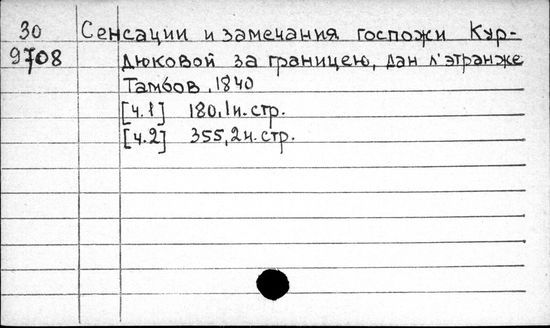 30 Сенсации и замечания госпожи Кур-
9708 дюковой за границею, дан л'этранже
Тамбов, 1840
[ч.1] 180, 1н.стр.
[ч.2] 355, 2н.стр.